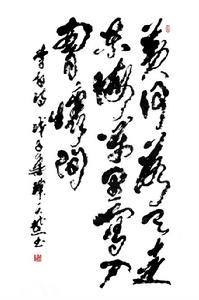 黄河落天走
东海万里写入
胸怀间
李白诗 戊子年